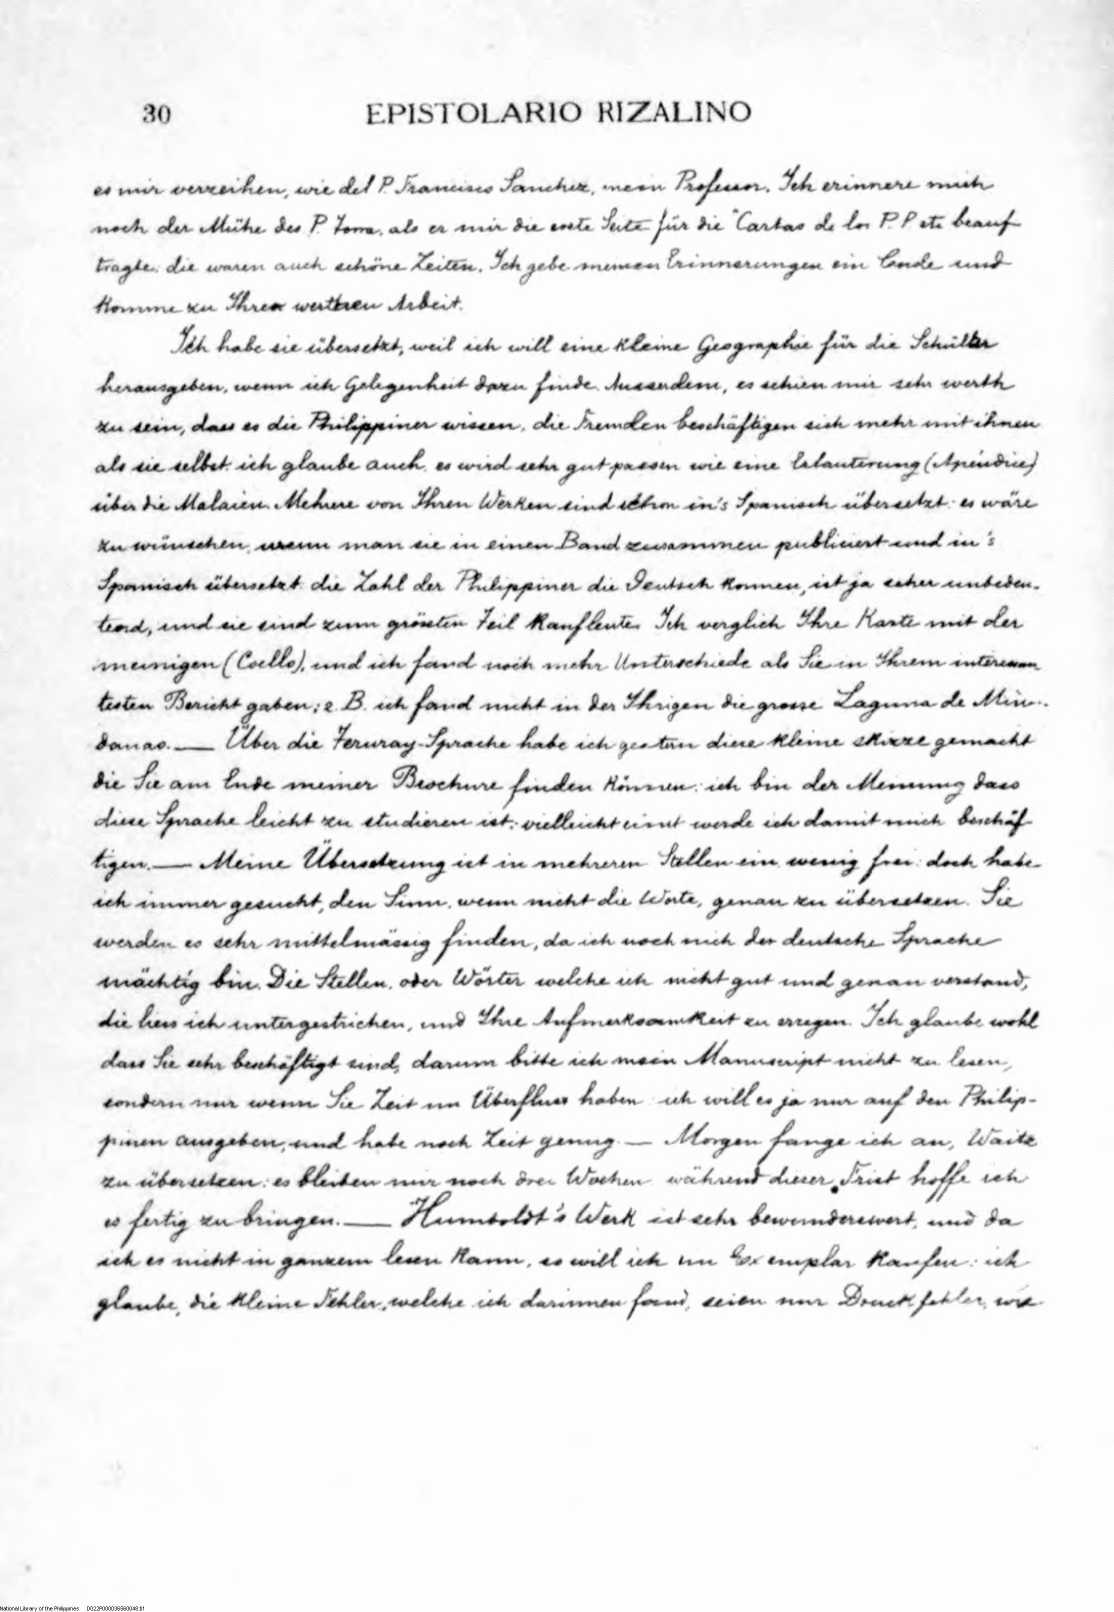 30 EPISTOLARIO RIZALINO
es mir verzeihen, wie del P. Francisco Sanchez, mein Professor. Ich erinnere mich
noch der Mühe des P. Torra, als er mir die erste Seite für die "Cartas de los P. P etc beauf
tragte: die waren auch schöne Zeiten. Ich gebe meinen Erinnerungen ein Ende und
komme zu Ihren werthen Arbeit.
Ich habe sie übersetzt, weil ich will eine kleine Geographie für die Schüller
herausgeben, wenn ich Gelegenheit dazu finde. Ausserdem, es schien mir sehr werth
zu sein, dass es die Philippiner wissen, die Fremden beschäftigen sich mehr mit ihnen
als sie selbst. ich glaube auch, es wird sehr gut passen wie eine Erlauterung (Apéndice)
über die Malaien. Mehrere von Ihren Werken sind schon in's Spanisch übersetzt: es wäre
zu wünschen, wenn man sie in einen Band zusammen publiciert und in's
Spanisch übersetzt. die Zahl der Philippiner die Deutsch konnen, ist ja sehr unbeden-
tend, und sie sind zum grössten Teil Kaufleute. Ich verglich Ihre Karte mit der
meinigen (Coello), und ich fand noch mehr Unterschiede als Sie in Ihrem interessan
testen Bericht gaben; z. B. ich fand nicht in der Ihrigen die grosse Laguna de Min-
danao. — Über die Teruray-Sprache habe ich gestern diese kleine skizze gemacht
die Sie am Ende meiner Brochure finden können: ich bin der Meinung dass
diese Sprache leicht zu studieren ist; vielleicht einst werde ich damit mich beschäf
tigen. — Meine Übersetzung ist in mehreren Stellen ein wenig frei: doch habe
ich immer gesucht, den Sinn, wenn nicht die Worte, genau zu übersetzen. Sie
werden es sehr mittelmässig finden, da ich noch nich der deutsche Sprache
mächtig bin. Die Stellen, oder Wörter welche ich nicht gut und genau verstand,
die liess ich untergestrichen, und Ihre Aufmerksamkeit zu erregen. Ich glaube wohl
dass Sie sehr beschäftigt sind, darum bitte ich mein Manuscript nicht zu lesen,
sondern nur wenn Sie Zeit im Überfluss haben: ich will es ja nur auf den Philip-
pinen ausgeben, und habe noch Zeit genug. — Morgen fange ich an, Waitz
zu übersetzen: es bleiben mir noch drei Wochen während dieser Frist hoffe ich
es fertig zu bringen. — Humboldt's Werk ist sehr bewunderswert, und da
ich es nicht in ganzem lesen kann, so will ich un Exemplar kaufen: ich
glaube, die kleine Fehler, welche ich darinnen fand, seien nur Druckfehler, wie
National Library of the Philippines